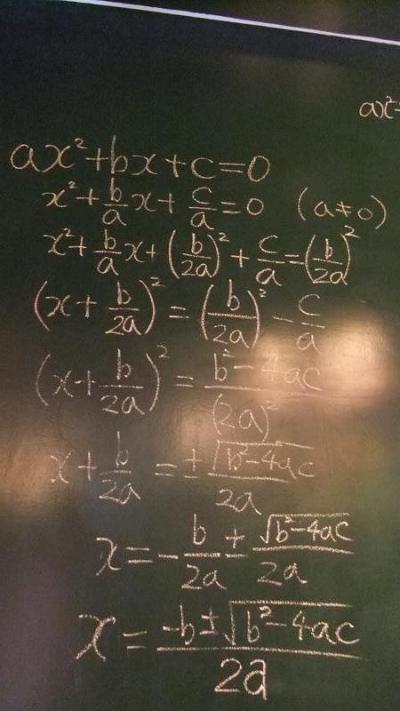 ax²+
ax²+bx+c=0
x²+b/a x+c/a=0 (a≠0)
x²+b/a x+(b/2a)²+c/a=(b/2a)²
(x+b/2a)²=(b/2a)²-c/a
(x+b/2a)²=b²-4ac/(2a)²
x+b/2a=±√b²-4ac/2a
x=-b/2a±√b²-4ac/2a
x=-b±√b²-4ac/2a